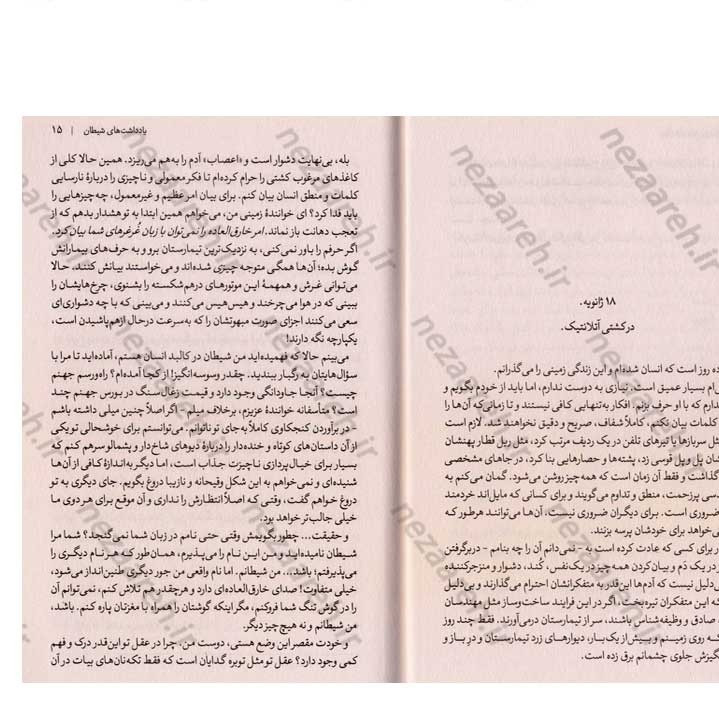 ۱۸ ژانویه.
در کشتی آتلانتیک.
ده روز است که انسان شده‌ام و این زندگی زمینی را می‌گذرانم.
بسیار عمیق است. نیازی به دوست ندارم، اما باید از خودم بگویم و
که با او حرف بزنم. افکار به‌تنهایی کافی نیستند و تا زمانی‌که آن‌ها را
کلمات بیان نکنم، کاملاً شفاف، صریح و دقیق نخواهند شد. لازم است
سربازها یا تیرهای تلفن در یک ردیف مرتب کرد، مثل ریل قطار پهنشان
پل و پل قوسی زد، پشته‌ها و حصارهایی بنا کرد، در جاهای مشخصی
گذاشت و فقط آن زمان است که همه‌چیز روشن می‌شود. گمان می‌کنم به
پرزحمت، منطق و تداوم می‌گویند و برای کسانی که مایل‌اند خردمند
ضروری است. برای دیگران ضروری نیست، آن‌ها می‌توانند هرطور که
می‌خواهد برای خودشان پرسه بزنند.
برای کسی که عادت کرده است به - نمی‌دانم آن را چه بنامم - دربرگرفتن
در یک دَم و بیان کردن همه چیز در یک نفس، کُند، دشوار و منزجرکننده
بی‌دلیل نیست که آدم‌ها این‌قدر به متفکرانشان احترام می‌گذارند و بی‌دلیل
که این متفکران تیره‌بخت، اگر در این فرایند ساخت‌وساز مثل مهندسان
صادق و وظیفه‌شناس باشند، سر از تیمارستان درمی‌آورند. فقط چند روز
که روی زمینم و بیش از یک بار، دیوارهای زرد تیمارستان و درِ باز و
جلوی چشمانم برق زده است.
یادداشت‌های شیطان | ۱۵
بله، بی‌نهایت دشوار است و «اعصاب» آدم را به‌هم می‌ریزد. همین حالا کلی از
کاغذهای مرغوب کشتی را حرام کرده‌ام تا فکر معمولی و ناچیزی را دربارهٔ نارسایی
کلمات و منطق انسان بیان کنم. برای بیان امر عظیم و غیرمعمول، چه‌چیزهایی را
باید فدا کرد؟ ای خوانندهٔ زمینی من، می‌خواهم همین ابتدا به تو هشدار بدهم که از
تعجب دهانت باز نماند. امر خارق‌العاده را نمی‌توان با زبان غُرغرهای شما بیان کرد.
اگر حرفم را باور نمی‌کنی، به نزدیک‌ترین تیمارستان برو و به حرف‌های بیمارانش
گوش بده؛ آن‌ها همگی متوجه چیزی شده‌اند و می‌خواستند بیانش کنند. حالا
می‌توانی غرش و همهمهٔ این موتورهای درهم‌شکسته را بشنوی، چرخ‌هایشان را
ببینی که در هوا می‌چرخند و هیس‌هیس می‌کنند و می‌بینی که با چه دشواری‌ای
سعی می‌کنند اجزای صورت مبهوتشان را که به‌سرعت درحال ازهم‌پاشیدن است،
یکپارچه نگه دارند!
می‌بینم حالا که فهمیده‌اید من شیطان در کالبد انسان هستم، آماده‌اید تا مرا با
سؤال‌هایتان به رگبار ببندید. چقدر وسوسه‌انگیز! از کجا آمده‌ام؟ راه‌ورسم جهنم
چیست؟ آنجا جاودانگی وجود دارد و قیمت زغال سنگ در بورس جهنم چند
است؟ متأسفانه خوانندهٔ عزیزم، برخلاف میلم - اگر اصلاً چنین میلی داشته باشم
- در برآوردن کنجکاوی کاملاً به‌جای تو ناتوانم. می‌توانستم برای خوشحالی تو یکی
از آن داستان‌های کوتاه و خنده‌دار را دربارهٔ دیوهای شاخ‌دار و پشمالو سرهم کنم که
بسیار برای خیال‌پردازی ناچیزت جذاب است، اما دیگر به‌اندازهٔ کافی از آن‌ها
شنیده‌ای و نمی‌خواهم به این شکل وقیحانه و نازیبا دروغ بگویم. جای دیگری به تو
دروغ خواهم گفت، وقتی که اصلاً انتظارش را نداری و آن موقع برای هر دوی ما
خیلی جالب‌تر خواهد بود.
و حقیقت... چطور بگویمش وقتی حتی نامم در زبان شما نمی‌گنجد؟ شما مرا
شیطان نامیده‌اید و من این نام را می‌پذیرم، همان‌طور که هر نام دیگری را
می‌پذیرفتم؛ باشد... من شیطانم. اما نام واقعی من جور دیگری طنین‌انداز می‌شود،
خیلی متفاوت! صدای خارق‌العاده‌ای دارد و هرچقدر هم تلاش کنم، نمی‌توانم آن
را در گوش تنگ شما فروکنم، مگر اینکه گوشتان را همراه با مغزتان پاره کنم. باشد،
من شیطانم و نه هیچ چیز دیگر.
و خودت مقصر این وضع هستی، دوست من، چرا در عقل تو این‌قدر درک و فهم
کمی وجود دارد؟ عقل تو مثل توبره گدایان است که فقط تکه‌نان‌های بیات در آن
nezaareh.ir
nezaareh.ir
nezaareh.ir
nezaareh.ir
nezaareh.ir
nezaareh.ir